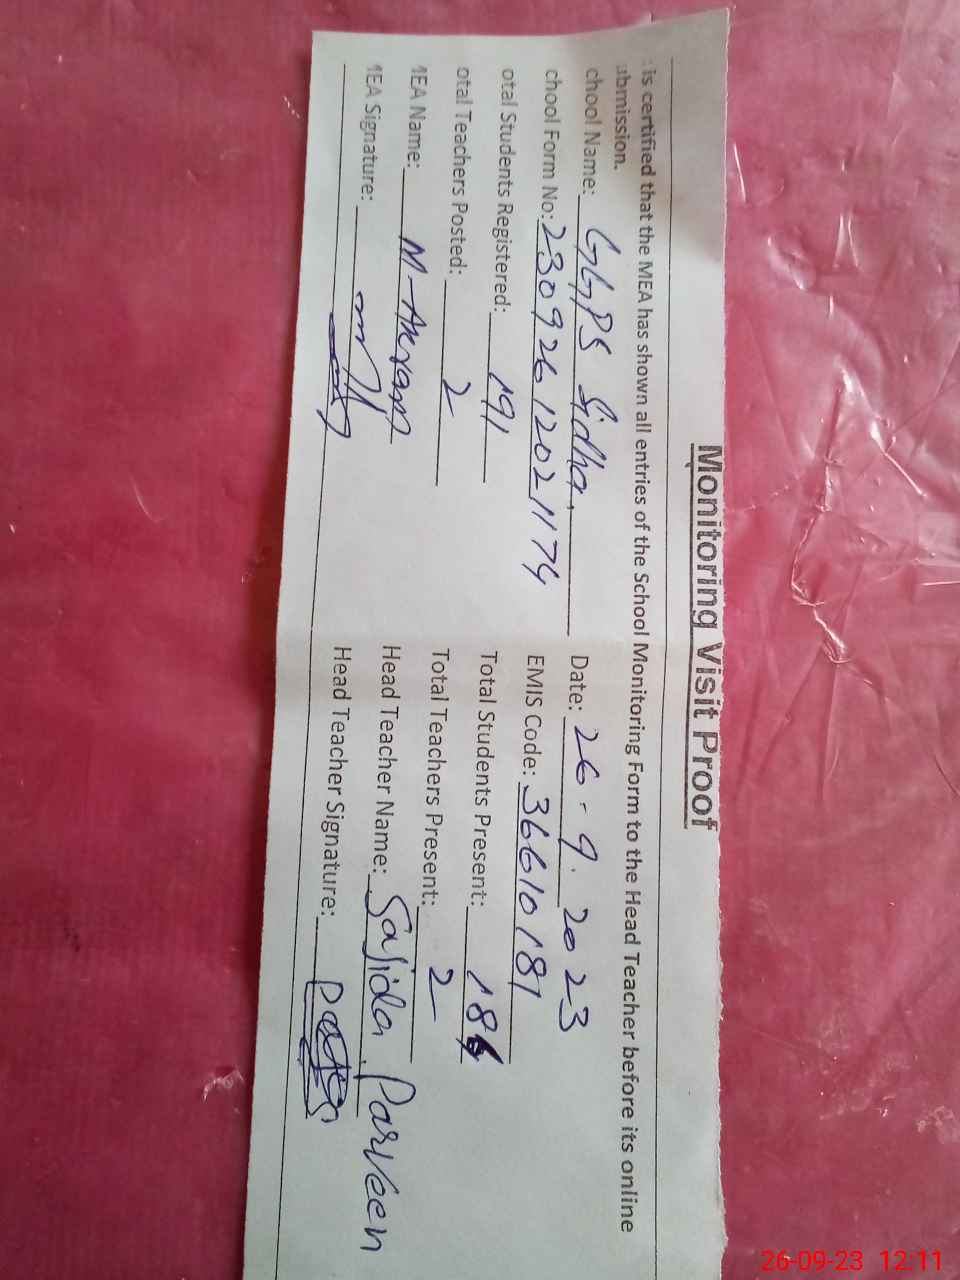 Monitoring Visit Proof
is certified that the MEA has shown all entries of the School Monitoring Form to the Head Teacher before its online
ubmission.
chool Name: GGPS Sidhar Date: 26-9.2023
chool Form No: 23092612021174 EMIS Code: 36610181
otal Students Registered: 191 Total Students Present:
otal Teachers Posted: 2 Total Teachers Present: 2
MEA Name: M-Akram Head Teacher Name: Sajida Parveen
MEA Signature: Head Teacher Signature:
26-09-23 12:11